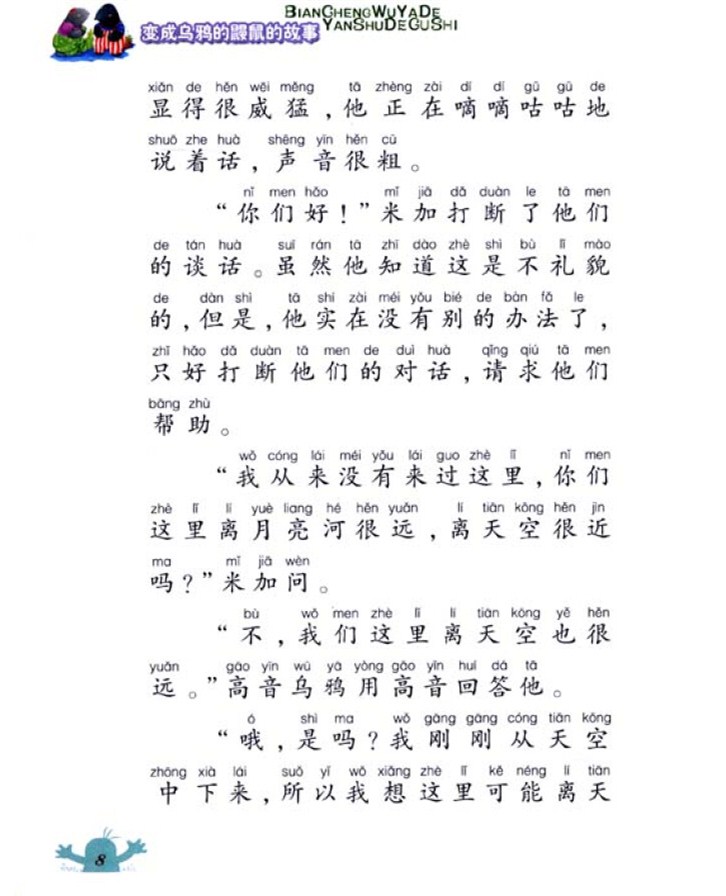 BianChengWuYaDe
YanShuDeGuShi
变成乌鸦的鼹鼠的故事
xiǎn de hěn wēi měng tā zhèng zài dí dí gū gū de
显得很威猛，他正在嘀嘀咕咕地
shuō zhe huà shēng yīn hěn cū
说着话，声音很粗。
nǐ men hǎo mǐ jiā dǎ duàn le tā men
“你们好！”米加打断了他们
de tán huà suī rán tā zhī dào zhè shì bù lǐ mào
的谈话。虽然他知道这是不礼貌
de dàn shì tā shí zài méi yǒu bié de bàn fǎ le
的，但是，他实在没有别的办法了，
zhǐ hǎo dǎ duàn tā men de duì huà qǐng qiú tā men
只好打断他们的对话，请求他们
bāng zhù
帮助。
wǒ cóng lái méi yǒu lái guo zhè lǐ nǐ men
“我从来没有来过这里，你们
zhè lǐ lí yuè liang hé hěn yuǎn lí tiān kōng hěn jìn
这里离月亮河很远，离天空很近
ma mǐ jiā wèn
吗？”米加问。
bù wǒ men zhè lǐ lí tiān kōng yě hěn
“不，我们这里离天空也很
yuǎn gāo yīn wū yā yòng gāo yīn huí dá tā
远。”高音乌鸦用高音回答他。
ó shì ma wǒ gāng gāng cóng tiān kōng
“哦，是吗？我刚刚从天空
zhōng xià lái suǒ yǐ wǒ xiǎng zhè lǐ kě néng lí tiān
中下来，所以我想这里可能离天
8